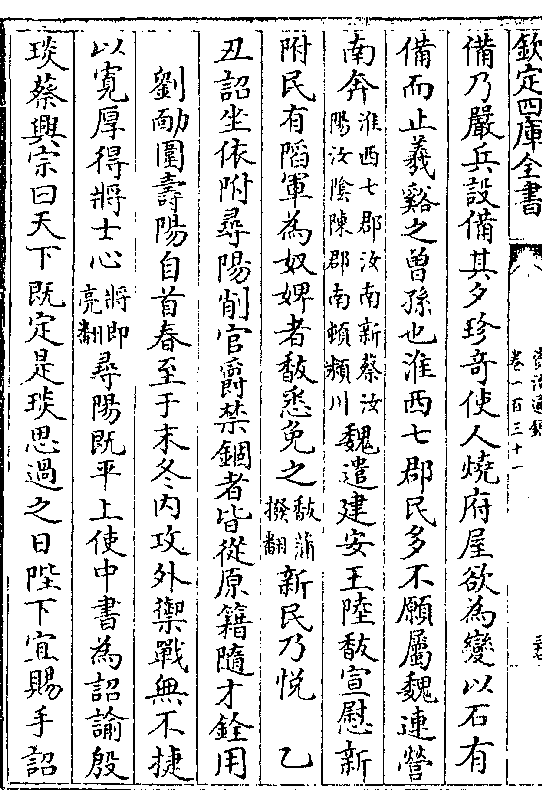 欽定四庫全書
資治通鑑
卷一百三十一
備乃嚴兵設備其夕珍奇使人燒府屋欲為變以石有
備而止羲谿之曾孫也淮西七郡民多不願屬魏連營
南奔淮西七郡汝南新蔡汝陽汝陰陳郡南頓潁川魏遣建安王陸馛宣慰新
附民有䧟軍為奴婢者馛悉免之馛蒲撥翻新民乃悅 乙
丑詔坐依附尋陽削官爵禁錮者皆從原籍隨才銓用
劉勔圍壽陽自首春至于末冬內攻外禦戰無不捷
以寛厚得將士心將即亮翻尋陽既平上使中書為詔諭殷
琰蔡興宗曰天下既定是琰思過之日陛下宜賜手詔